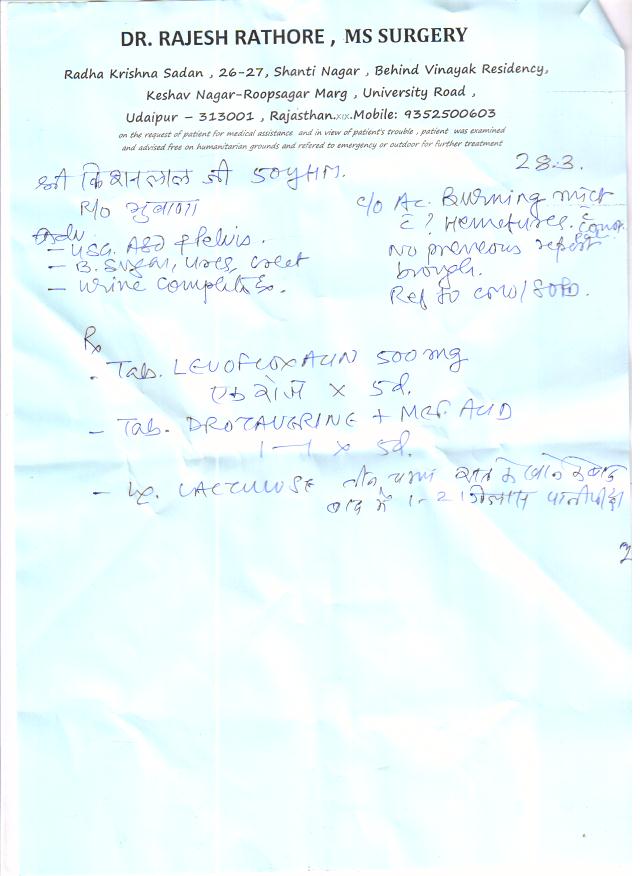 DR. RAJESH RATHORE , MS SURGERY
Radha Krishna Sadan , 26-27, Shanti Nagar , Behind Vinayak Residency,
Keshav Nagar-Roopsagar Marg , University Road ,
Udaipur – 313001 , Rajasthan.xix.Mobile: 9352500603
on the request of patient for medical assistance and in view of patient's trouble , patient was examined
and advised free on humanitarian grounds and refered to emergency or outdoor for further treatment
28.3.
श्री किशनलाल जी 50y/M.
R/o भुवाणा
c/o Ac. Burning mict
c̄ ? Hemetures. c̄
Adv
- USG. Abd & Pelvis.
- B. Sugar, urea, creat
- Urine complete
No preveous report
brough.
Ref to
Rx
- Tab. LEVOFLOXACIN 500mg
एक रोज x 5d.
- Tab. DROTAVERINE + MEF. ACID
1—1 x 5d.
- LACTULOSE तीन चम्मच रात के खाने के बाद
बाद में 1-2 गिलास पानी